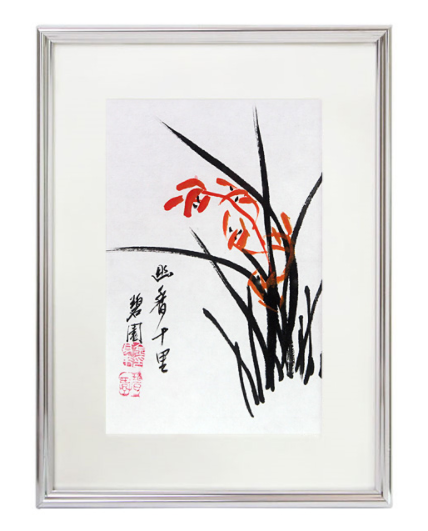 幽香十里
碧園